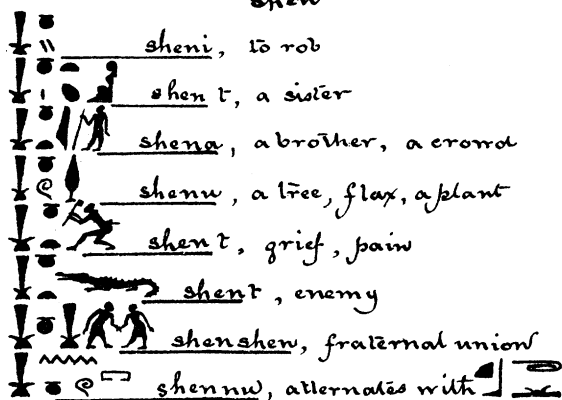 shen
sheni, to rob
shen t, a sister
shena, a brother, a crowd
shenu, a tree, flax, a plant
shent, grief, pain
shent, enemy
shenshen, fraternal union
shennu, alternates with